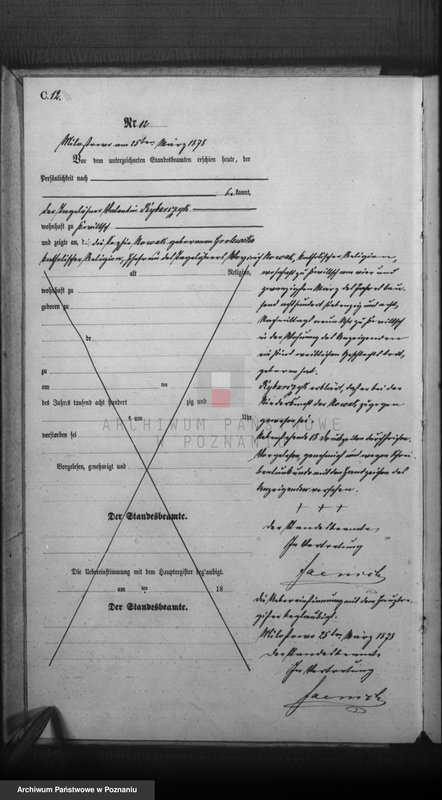 C. 12.
Nr. 12
Miloslowo am 25ten März 1878
Vor dem unterzeichneten Standesbeamten erschien heute, der
Persönlichkeit nach
be kannt,
der Tagelöhner Valentin Rybarczyk
wohnhaft zu
und zeigte an, d. die Sophia Nowak geborene
katholischer Religion, Ehefrau des Tagelöhners Nowak, katholischer Religion,
alt Religion,
wohnhaft zu
geboren zu
de
zu
am ten
des Jahres tausend acht hundert zig und
um Uhr
verstorben sei
Vorgelesen, genehmigt und
Der Standesbeamte.
Die Uebereinstimmung mit dem Hauptregister beglaubigt.
am ten 18
Der Standesbeamte.
wohnhaft zu am vier und
zwanzigsten März des Jahres tau-
send achthundert siebenzig und acht,
Nachmittags neun Uhr zu
in der Wohnung des Anzeigenden
ein Kind weiblichen Geschlechts todt
geboren hat.
Rybarczyk erklärt, daß er bei der
Niederkunft der Nowak zugegen
gewesen sei.
Vorstehende 15 Druckzeilen durchstrichen.
Vorgelesen, genehmigt und wegen Schrei-
bensunkunde mit den Handzeichen des
Anzeigenden versehen.
+ + +
Der Standesbeamte,
In Vertretung
Jaenich
Die Uebereinstimmung mit dem Hauptre-
gister beglaubigt.
Miloslowo 25ten März 1878
Der Standesbeamte
In Vertretung
Jaenich
ARCHIWUM PAŃSTWOWE
W POZNANIU
Archiwum Państwowe w Poznaniu